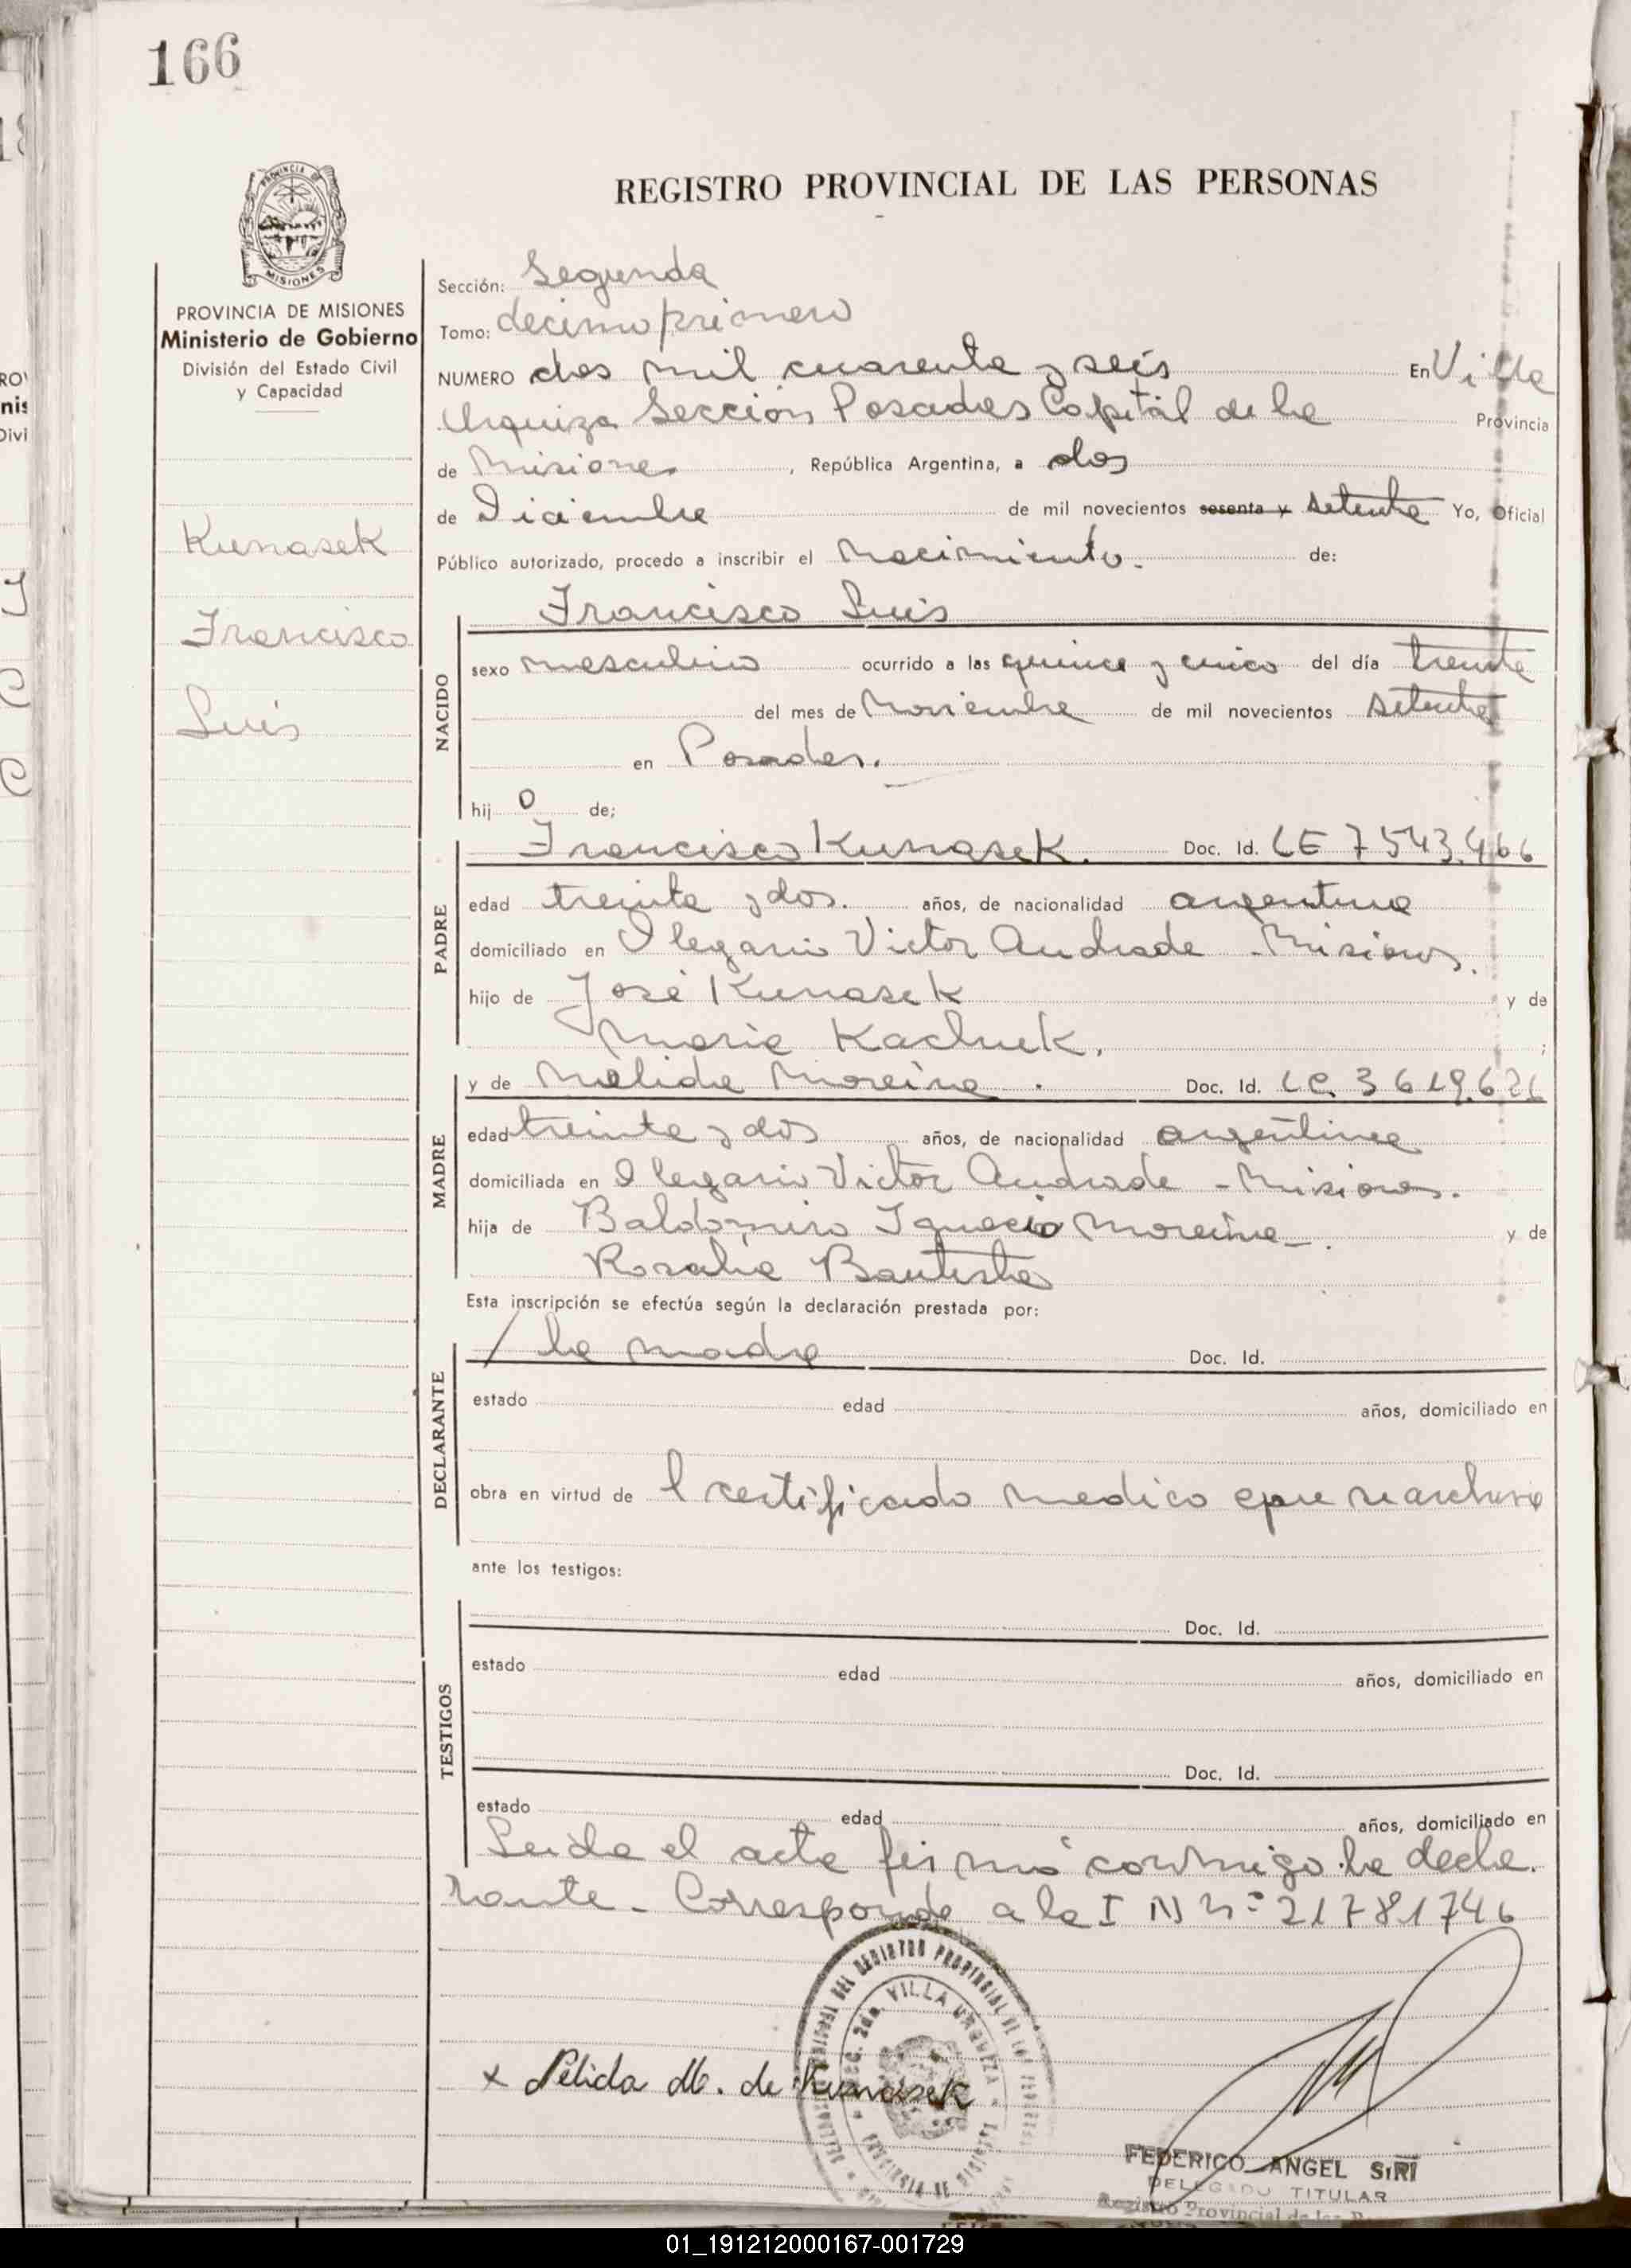 166
REGISTRO PROVINCIAL DE LAS PERSONAS
PROVINCIA DE MISIONES
Ministerio de Gobierno
División del Estado Civil
y Capacidad
Kunasek
Francisco
Luis
Sección: Segunda
Tomo: decimo primero
NUMERO dos mil cuarenta y seis En Villa
Urquiza Sección Posadas Capital de la Provincia
de Misiones, República Argentina, a dos
de Diciembre de mil novecientos sesenta y setenta Yo, Oficial
Público autorizado, procedo a inscribir el Nacimiento. de:
NACIDO
Francisco Luis
sexo masculino ocurrido a las quince y cinco del día treinta
del mes de Noviembre de mil novecientos setenta
en Posadas.
hij o de;
PADRE
Francisco Kunasek. Doc. Id. LE 7543.466
edad treinta y dos. años, de nacionalidad argentina
domiciliado en Olegario Victor Andrade - Misiones.
hijo de José Kunasek y de
Maria Kachuk. ;
MADRE
y de Nelida Moreira. Doc. Id. LC. 3619.626
edad treinta y dos años, de nacionalidad argentina
domiciliada en Olegario Victor Andrade - Misiones.
hija de Baldomiro Ignacio Moreira - y de
Rosalia Bautista
Esta inscripción se efectúa según la declaración prestada por:
DECLARANTE
/ la madre Doc. Id.
estado edad años, domiciliado en
obra en virtud de l certificado medico que se archiva
ante los testigos:
TESTIGOS
Doc. Id.
estado edad años, domiciliado en
Doc. Id.
estado edad años, domiciliado en
Leida el acta firmó conmigo la decla
rante - Corresponde a la I N nº 21781746
x Nélida M. de Kunasek
VILLA URQUIZA
FEDERICO ANGEL SIRI
DELEGADO TITULAR
Registro Provincial de las P
01_191212000167-001729